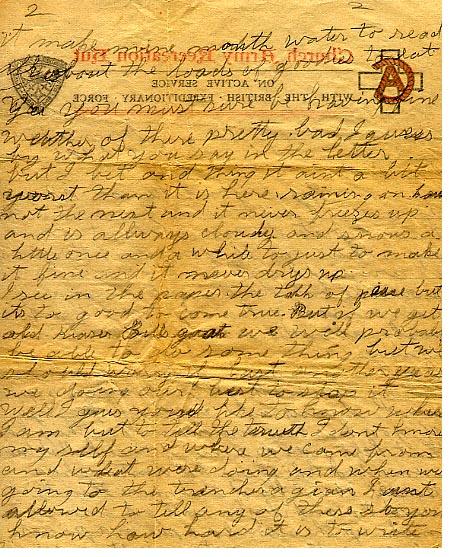 2 2
it make mine mouth water to read
Church Army Recreation Hut
about the loads of good to eat
ON ACTIVE SERVICE
WITH THE BRITISH EXPEDITIONARY FORCE
you must sure be having fine
weather of there pretty bad I guess
by what you say in the letter
but I bet and thing it aint a bit
worst than it is here raining an hour
not the next and it never freezes up
and is allways cloudy and snows a
little once and a while to just to make
it fine and it never drys up.
I see in the paper the talk of peace but
its to good to come true. But if we get
old Kiaser Bills goat we will probably
be able to do some thing but we
another year
we going our best to stop it
well you like to know where
I am but to tell the trueth I dont know
my self and where we came from
and what were doing and when we
going to the trenches again I aint
allowed to tell any of these so you
know how hard it is to write